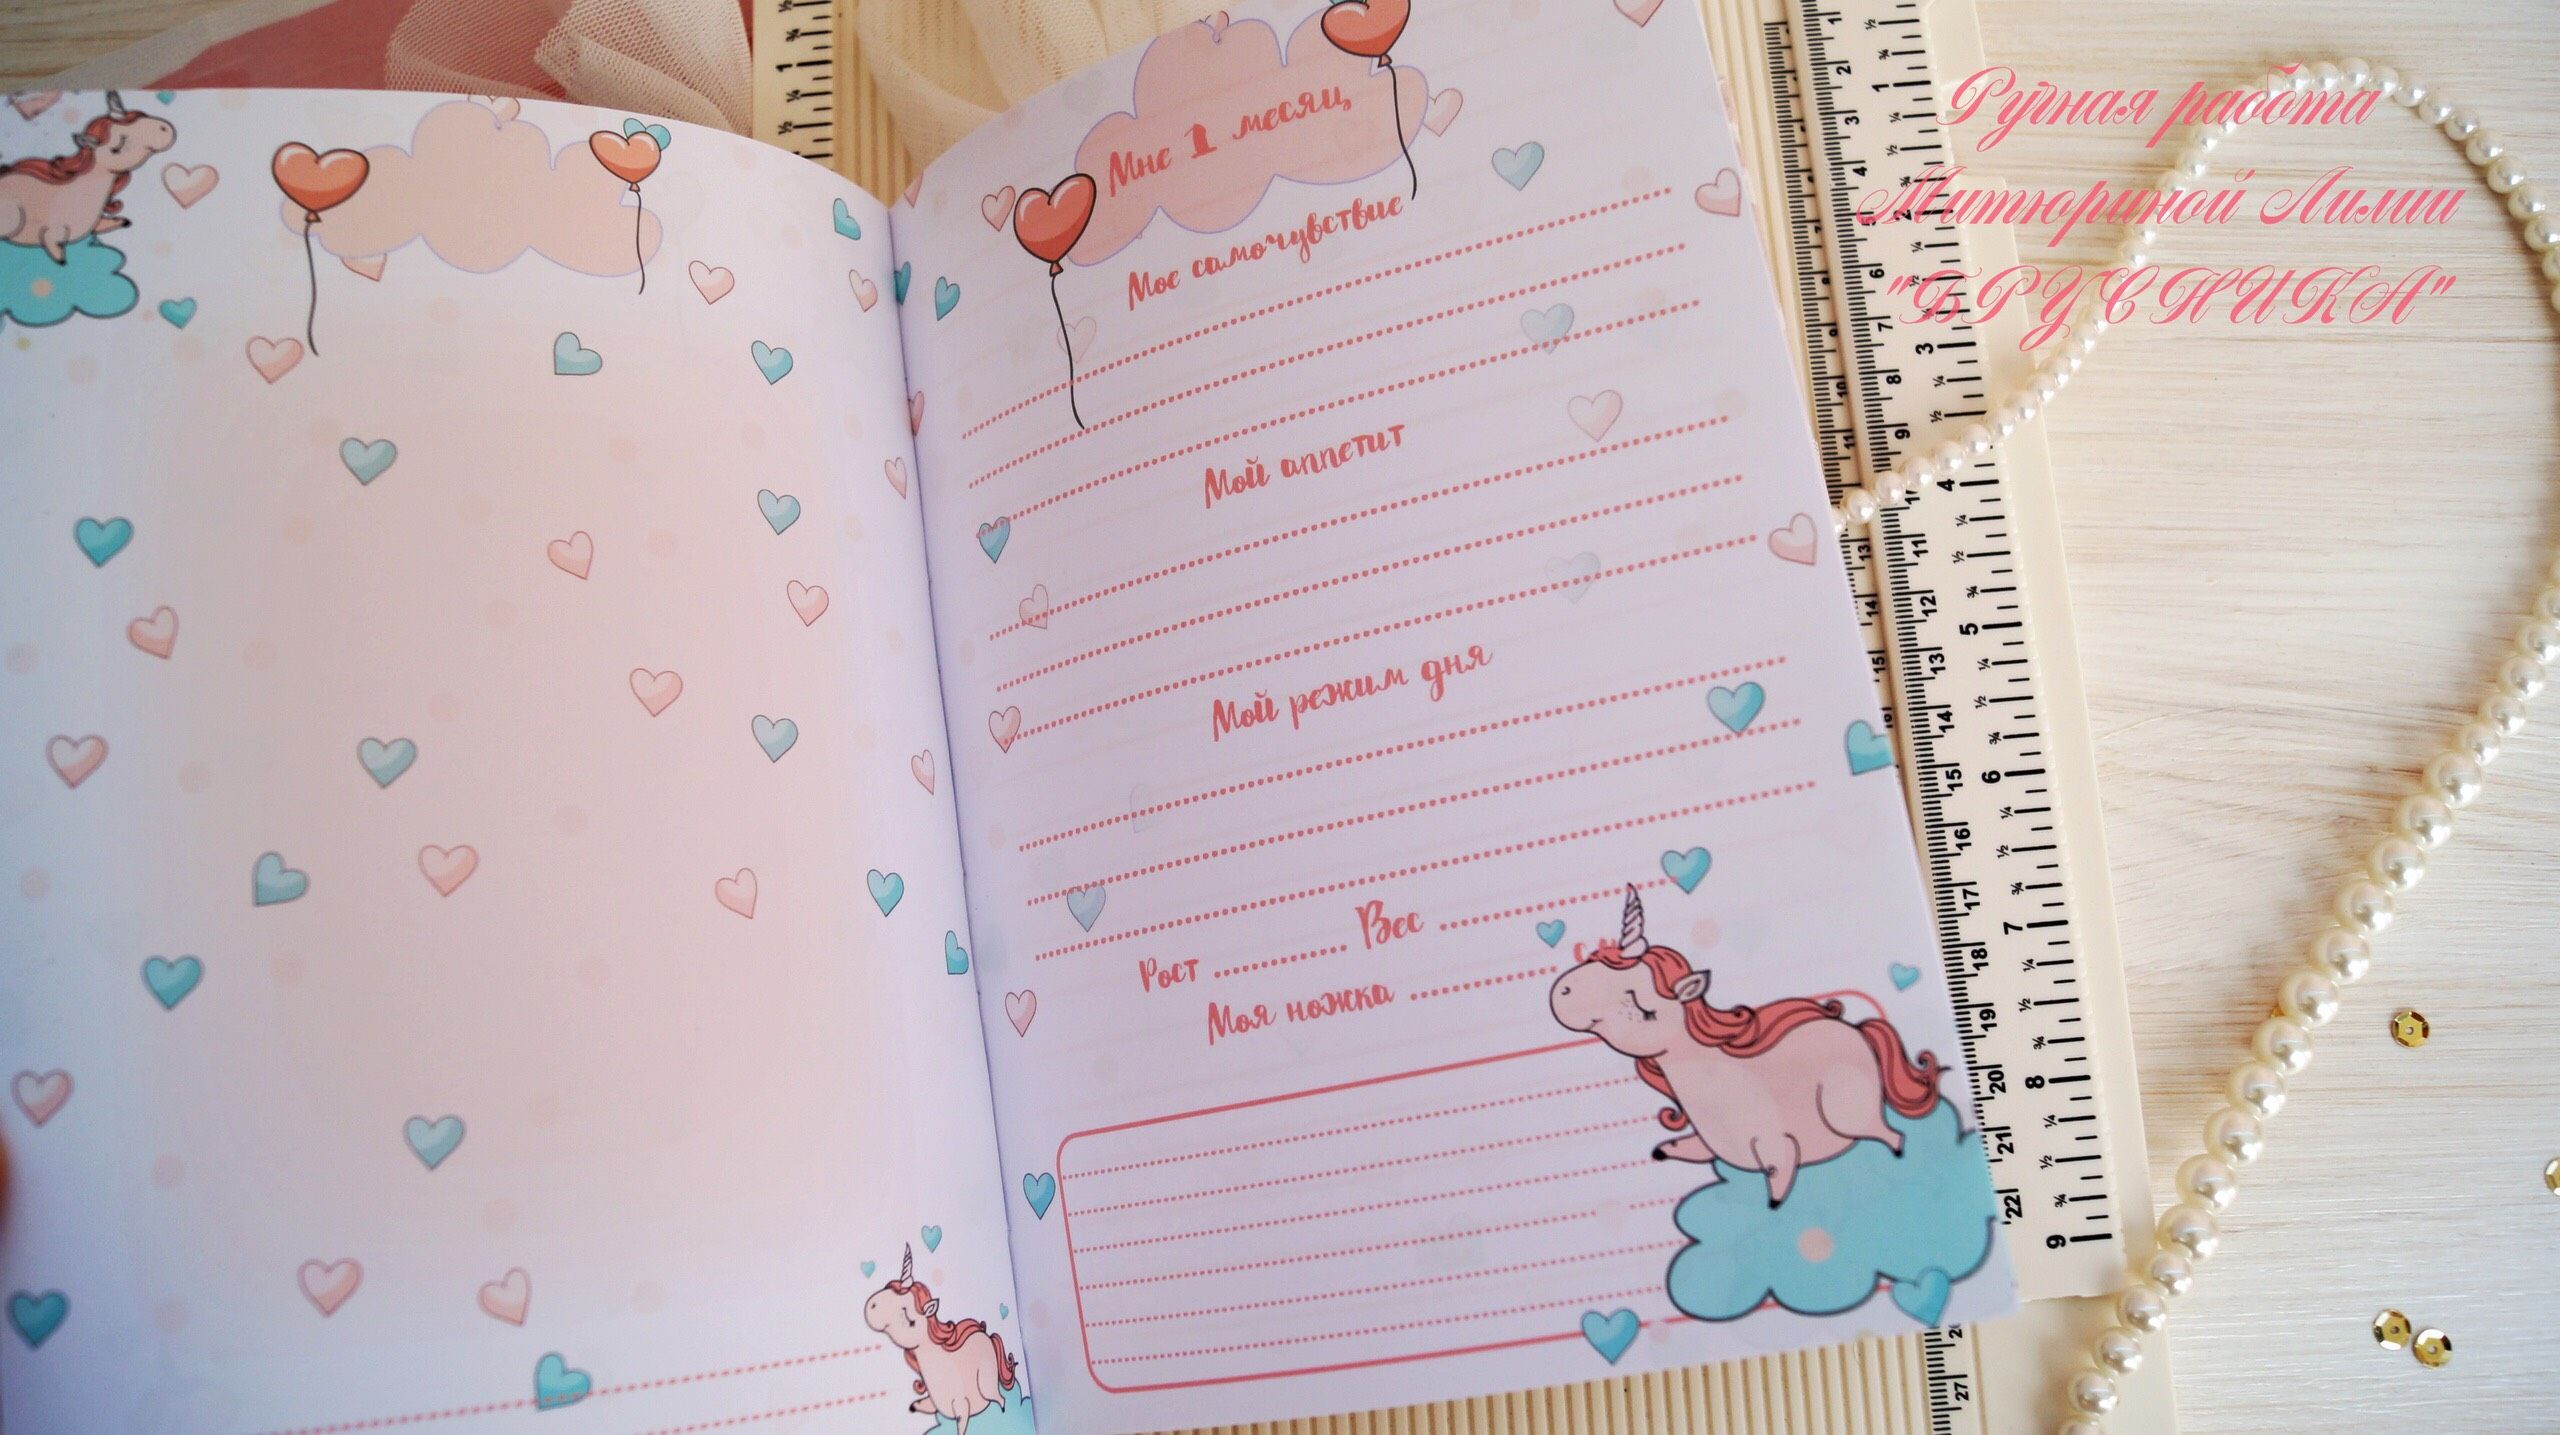 Мне 1 месяц
Мое самочувствие
Мой аппетит
Мой режим дня
Рост Вес
Моя ножка см
Ручная работа
Митюриной Лилии
"БРУСНИКА"